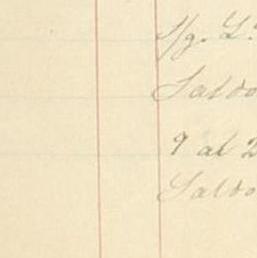 S/g. L.
Saldo
9 al 2
Saldo